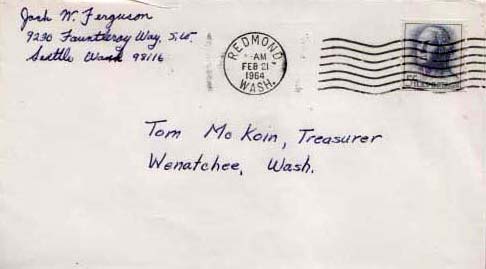 Jack W. Ferguson
9230 Fauntleroy Way, S.W.
Seattle Wash 98116
REDMOND
AM
FEB 21
1964
WASH.
5¢
Tom McKoin, Treasurer
Wenatchee, Wash.